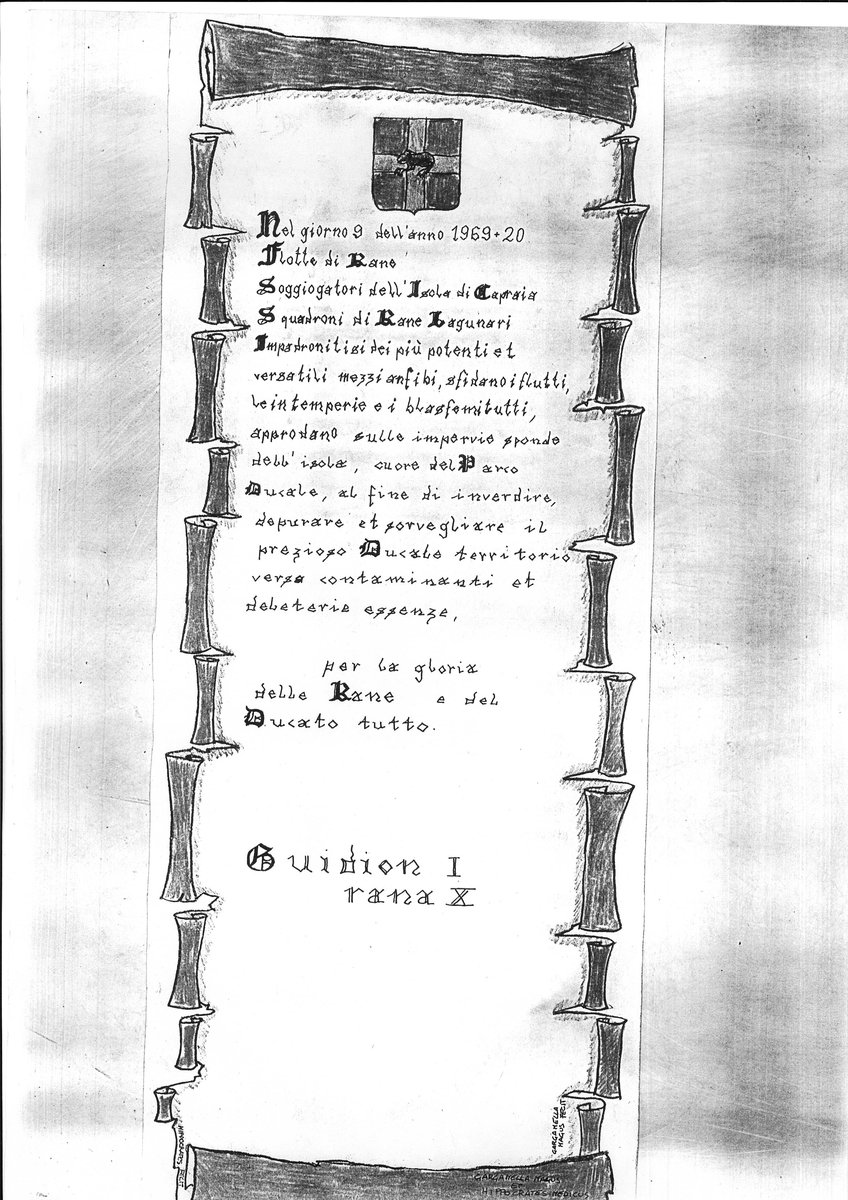 Nel giorno 9 dell'anno 1969+20
Flotte di Rane
Soggiogatori dell'Isola di Capraia
Squadroni di Rane Lagunari
Impadronitisi dei più potenti et
versatili mezzi anfibi, sfidano i flutti,
le intemperie e i blasfemi tutti,
approdano sulle impervie sponde
dell'isola, cuore del Parco
Ducale, al fine di inverdire,
depurare et sorvegliare il
prezioso Ducale territorio
verso contaminanti et
deleterie essenze,
per la gloria
delle Rane e del
Ducato tutto.
Guidion I
rana X
GARGANELLA
MAGUS FECIT
GARGANELLA MAGUS
HIPPOCRATES MEDICUS